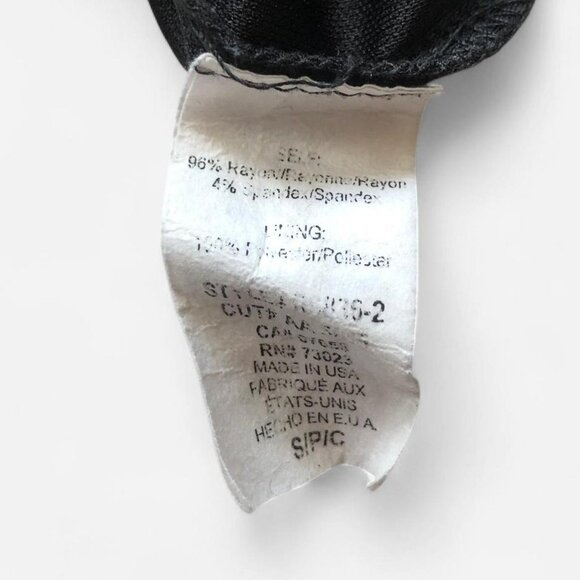 SELF:
96% Rayon/Rayonne/Rayon
4% Spandex/Spandex
LINING:
100% Polyester/Poliester
STYLE#
CUT#
CA#
RN# 73023
MADE IN USA
FABRIQUÉ AUX
ÉTATS-UNIS
HECHO EN E.U.A.
S/P/C